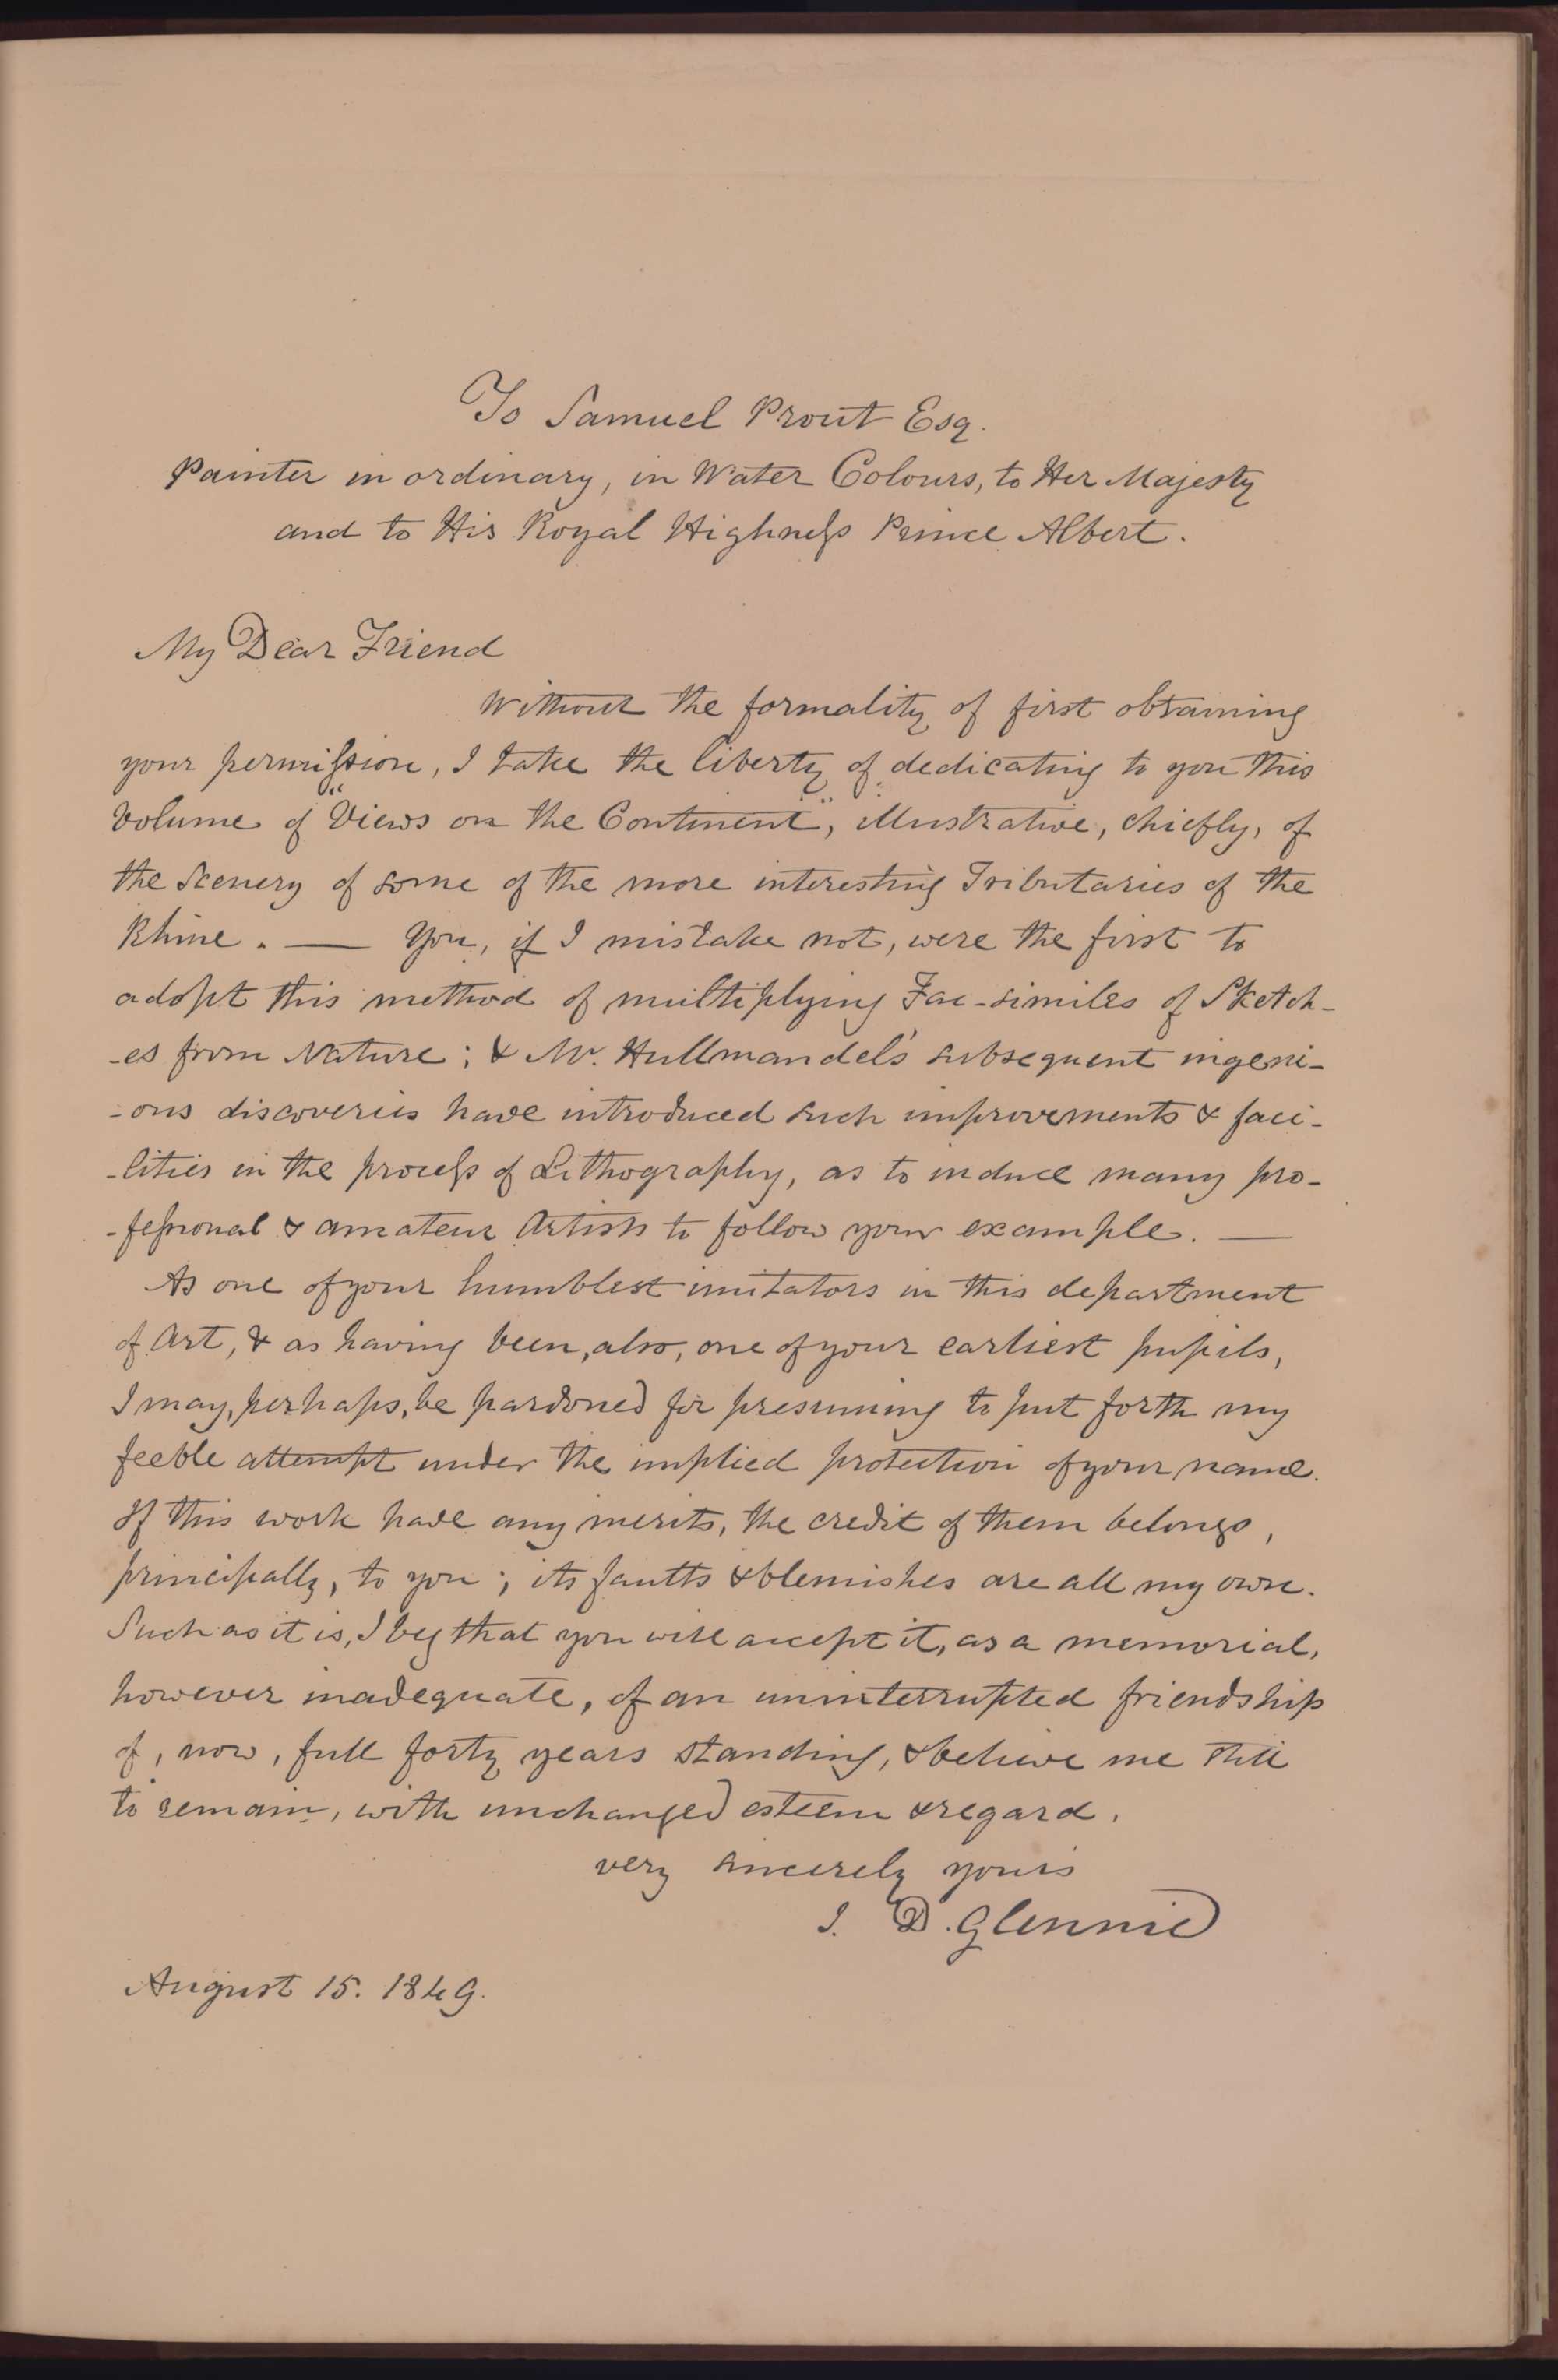 To Samuel Prout Esq.
Painter in ordinary, in Water Colours, to Her Majesty
and to His Royal Highneſs Prince Albert.
My Dear Friend
Without the formality of first obtaining
your permiſsion, I take the liberty of dedicating to you this
volume of "Views on the Continent", illustrative, chiefly, of
the Scenery of some of the more interesting Tributaries of the
Rhine. — You, if I mistake not, were the first to
adopt this method of multiplying Fac-similes of Sketch-
-es from Nature; & Mr. Hullmandel's subsequent ingeni-
-ous discoveries have introduced such improvements & faci-
-lities in the proceſs of Lithography, as to induce many pro-
-feſsional & amateur Artists to follow your example. —
As one of your humblest imitators in this department
of Art, & as having been, also, one of your earliest pupils,
I may, perhaps, be pardoned for presuming to put forth my
feeble attempt under the implied protection of your name.
If this work have any merits, the credit of them belongs,
principally, to you; its faults & blemishes are all my own.
Such as it is, I beg that you will accept it, as a memorial,
however inadequate, of an uninterrupted friendship
of, now, full forty years standing, & believe me still
to remain, with unchanged esteem & regard,
very sincerely yours
I. D. Glennie
August 15. 1849.